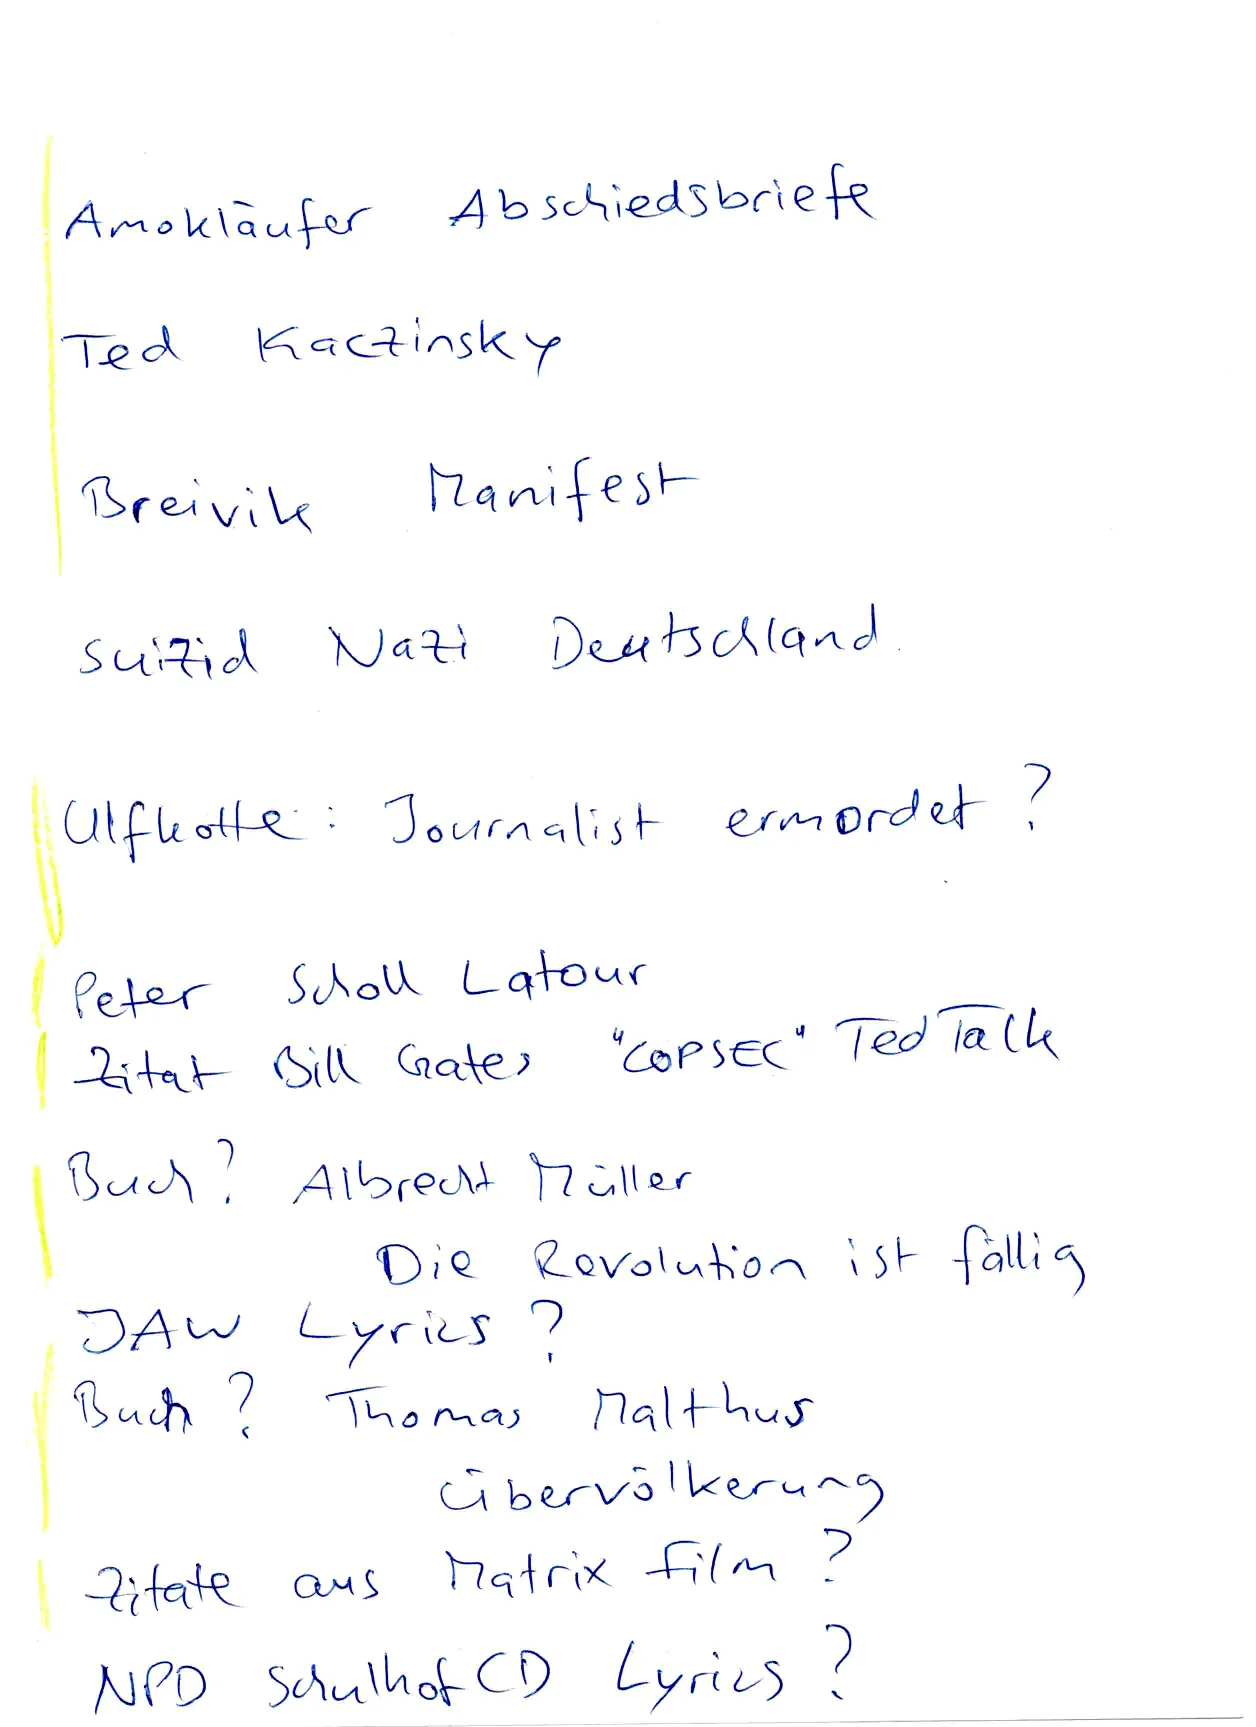 Amokläufer Abschiedsbriefe
Ted Kaczinsky
Breivik Manifest
Suizid Nazi Deutschland
Ulfkotte: Journalist ermordet?
Peter Scholl Latour
Zitat Bill Gates "COPSEC" Ted Talk
Buch? Albrecht Müller
Die Revolution ist fällig
JAW Lyrics?
Buch? Thomas Malthus
Übervölkerung
Zitate aus Matrix Film?
NPD Schulhof CD Lyrics?